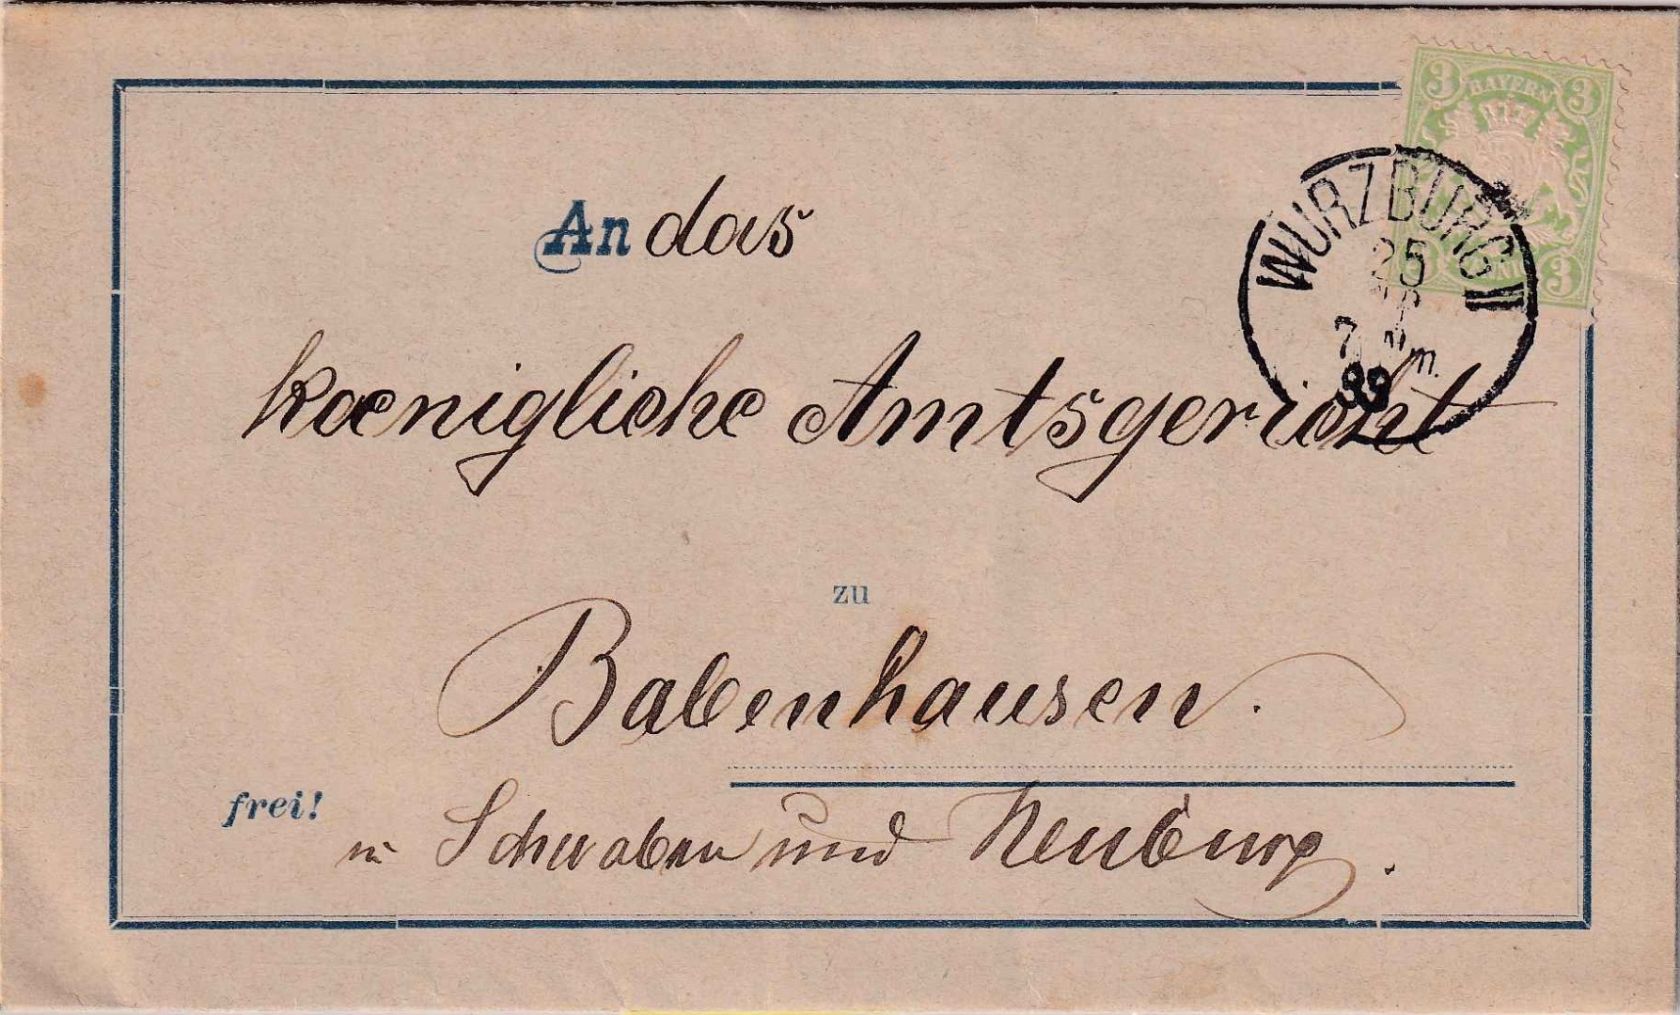 3 BAYERN 3
WÜRZBURG III
25
7 Nm.
89
3
An das
kœnigliche Amtsgericht
zu
Babenhausen.
frei!
in Schwaben und Neuburg.